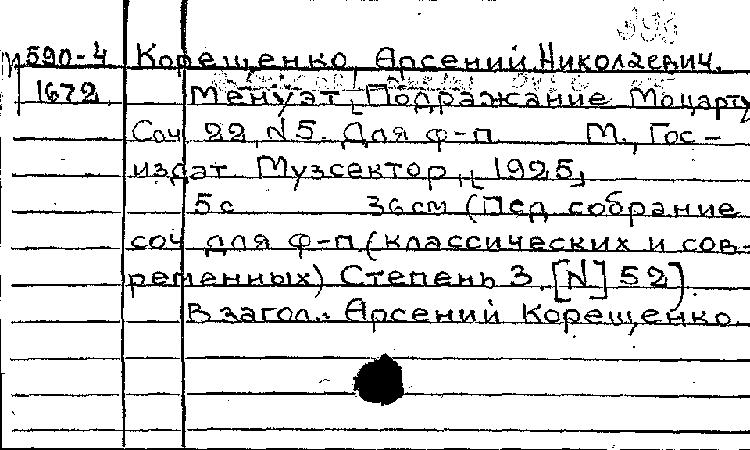 М590-4 Корещенко, Арсений Николаевич.
1672 Менуэт, [Подражание Моцарту
Соч 22, N5. Для ф-п М., Гос-
издат Музсектор, [1925]
5с 36см (Пед собрание
соч для ф-п (классических и сов-
ременных) Степень 3 [N] 52).
В загол.: Арсений Корещенко.